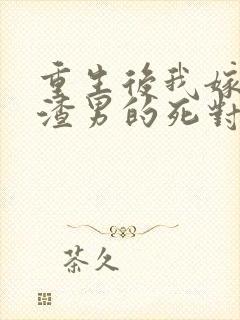 重生後我嫁
渣男的死對
茶久